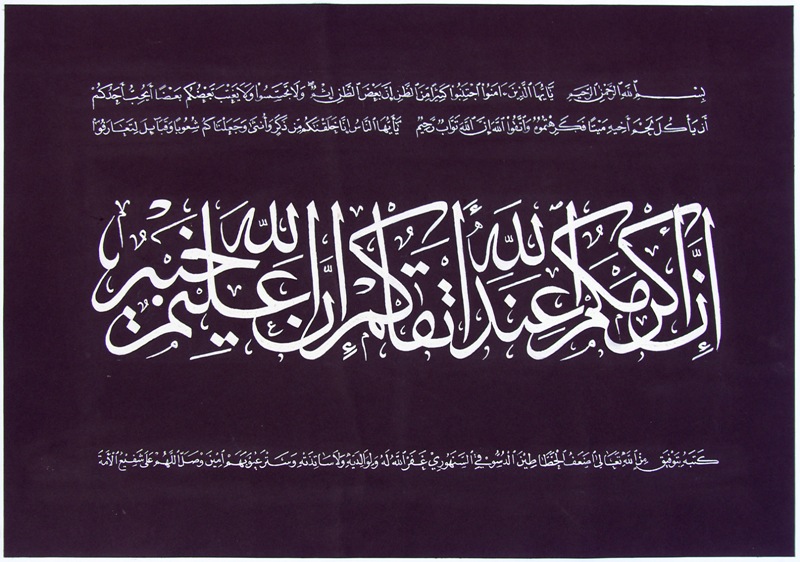 بسم الله الرحمن الرحيم يا أيها الذين ءامنوا اجتنبوا كثيرا من الظن إن بعض الظن إثم ولا تجسسوا ولا يغتب بعضكم بعضا أيحب أحدكم
أن يأكل لحم أخيه ميتا فكرهتموه واتقوا الله إن الله تواب رحيم يا أيها الناس إنا خلقنكم من ذكر وأنثى وجعلناكم شعوبا وقبايل لتعارفوا
إن أكرمكم عند الله أتقاكم إن الله عليم خبير
كتبه بتوفيق من الله تعالى أضعف الخطاطين الدسوقي السنهوري غفر الله له ولوالديه ولأساتذته وستر عيوبهم آمين وصل اللهم على شفيع الأمة